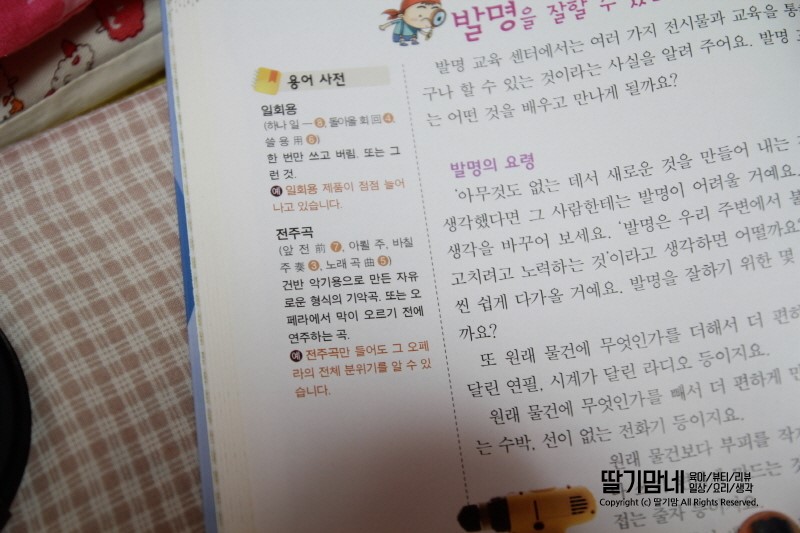 발명을 잘할 수
용어 사전
일회용
(하나 일 一 8, 돌아올 회 回 4,
쓸 용 用 6)
한 번만 쓰고 버림. 또는 그
런 것.
예 일회용 제품이 점점 늘어
나고 있습니다.
전주곡
(앞 전 前 7, 아뢸 주, 바칠
주 奏 3, 노래 곡 曲 5)
건반 악기용으로 만든 자유
로운 형식의 기악곡. 또는 오
페라에서 막이 오르기 전에
연주하는 곡.
예 전주곡만 들어도 그 오페
라의 전체 분위기를 알 수 있
습니다.
발명 교육 센터에서는 여러 가지 전시물과 교육을 통
구나 할 수 있는 것이라는 사실을 알려 주어요. 발명
는 어떤 것을 배우고 만나게 될까요?
발명의 요령
'아무것도 없는 데서 새로운 것을 만들어 내는
생각했다면 그 사람한테는 발명이 어려울 거예요.
생각을 바꾸어 보세요. '발명은 우리 주변에서 불
고치려고 노력하는 것'이라고 생각하면 어떨까요?
씬 쉽게 다가올 거예요. 발명을 잘하기 위한 몇
까요?
또 원래 물건에 무엇인가를 더해서 더 편하
달린 연필, 시계가 달린 라디오 등이지요.
원래 물건에 무엇인가를 빼서 더 편하게 만
는 수박, 선이 없는 전화기 등이지요.
원래 물건보다 부피를 작
만드는 것
접는 줄자
딸기맘네 육아/뷰티/리뷰
일상/요리/생각
Copyright (c) 딸기맘 All Rights Reserved.